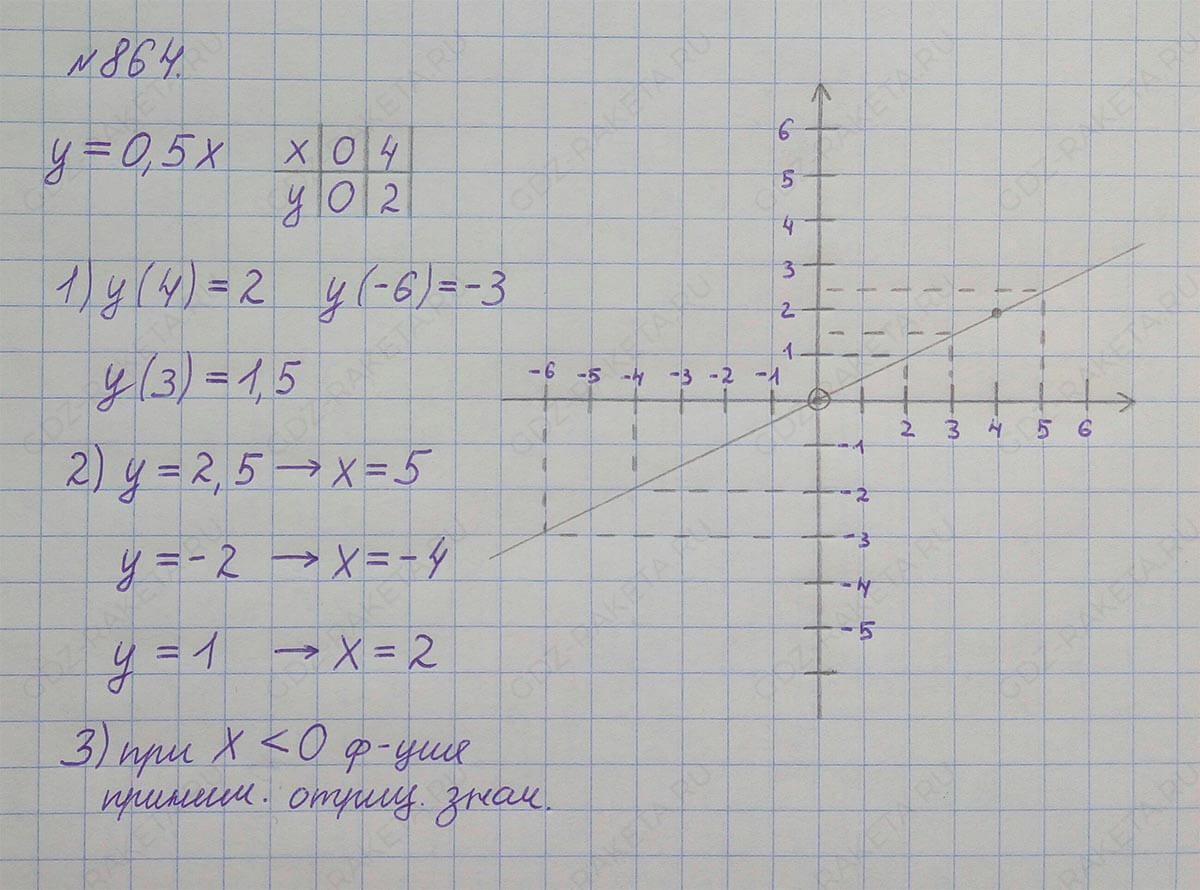 №864.
y = 0,5x
x 0 4
y 0 2
1) y(4) = 2 y(-6) = -3
y(3) = 1,5
2) y = 2,5 → x = 5
y = -2 → x = -4
y = 1 → x = 2
3) при x < 0 ф-ция
приним. отриц. знач.
6
5
4
3
2
1
-6 -5 -4 -3 -2 -1
2 3 4 5 6
-1
-2
-3
-4
-5
GDZ-RAKETA.RU